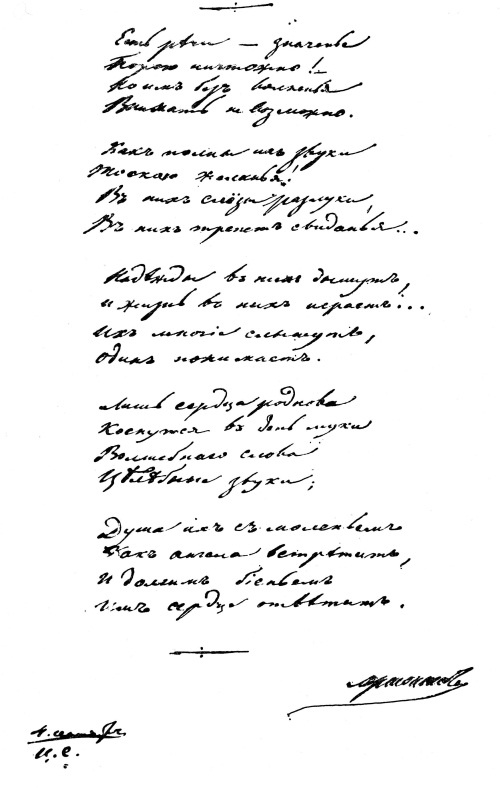 Есть рѣчи — значенье
Порою ничтожно!
Но имъ безъ волненья
Внимать не возможно.
Какъ полны ихъ звуки
Тоскою желанья!
Въ нихъ слёзы разлуки,
Въ нихъ трепетъ свиданья...
Надежды въ нихъ дышутъ,
И жизнь въ нихъ играетъ...
Ихъ многіе слышутъ,
Одинъ понимаетъ.
Лишь сердца роднова
Коснутся въ день муки
Волшебнаго слова
Цѣлебные звуки;
Душа ихъ съ моленьемъ
Какъ ангела встрѣтитъ,
И долгимъ біеньемъ
Имъ сердце отвѣтитъ.
Лермонтовъ
4. сент
Ц. С.